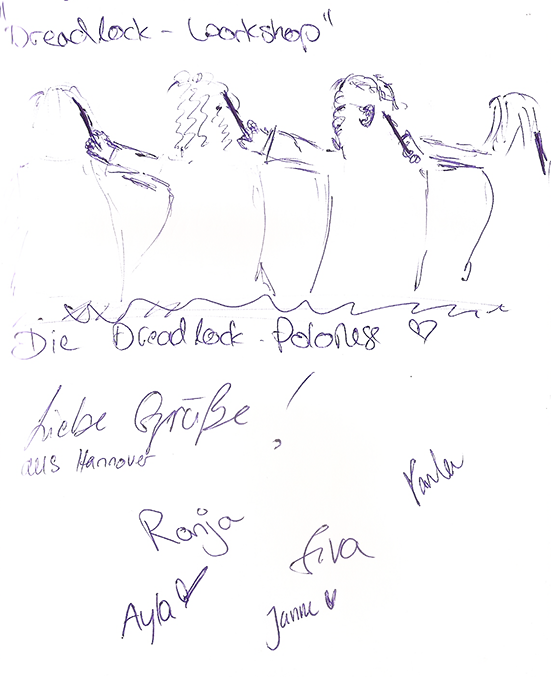 "Dreadlock - Workshop"
Die Dreadlock-Polonese ♡
Liebe Grüße!
aus Hannover
Ronja
Ayla
Janne